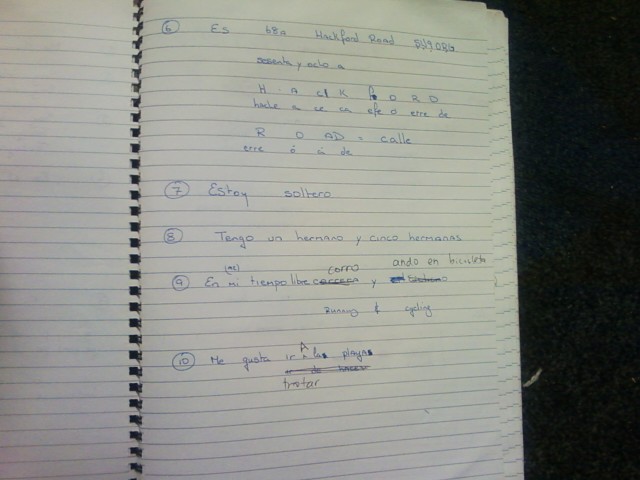 ⑥ Es 68a Hackford Road
sesenta y ocho a
H A C K F O R D
hache a ce ca efe ó erre de
R O AD = calle
erre ó a de
⑦ Estoy soltero.
⑧ Tengo un hermano y cinco hermanas
(me) corro ando en bicicleta
⑨ En mi tiempo libre y
running & cycling
A
⑩ Me gusta ir las playas
trotar